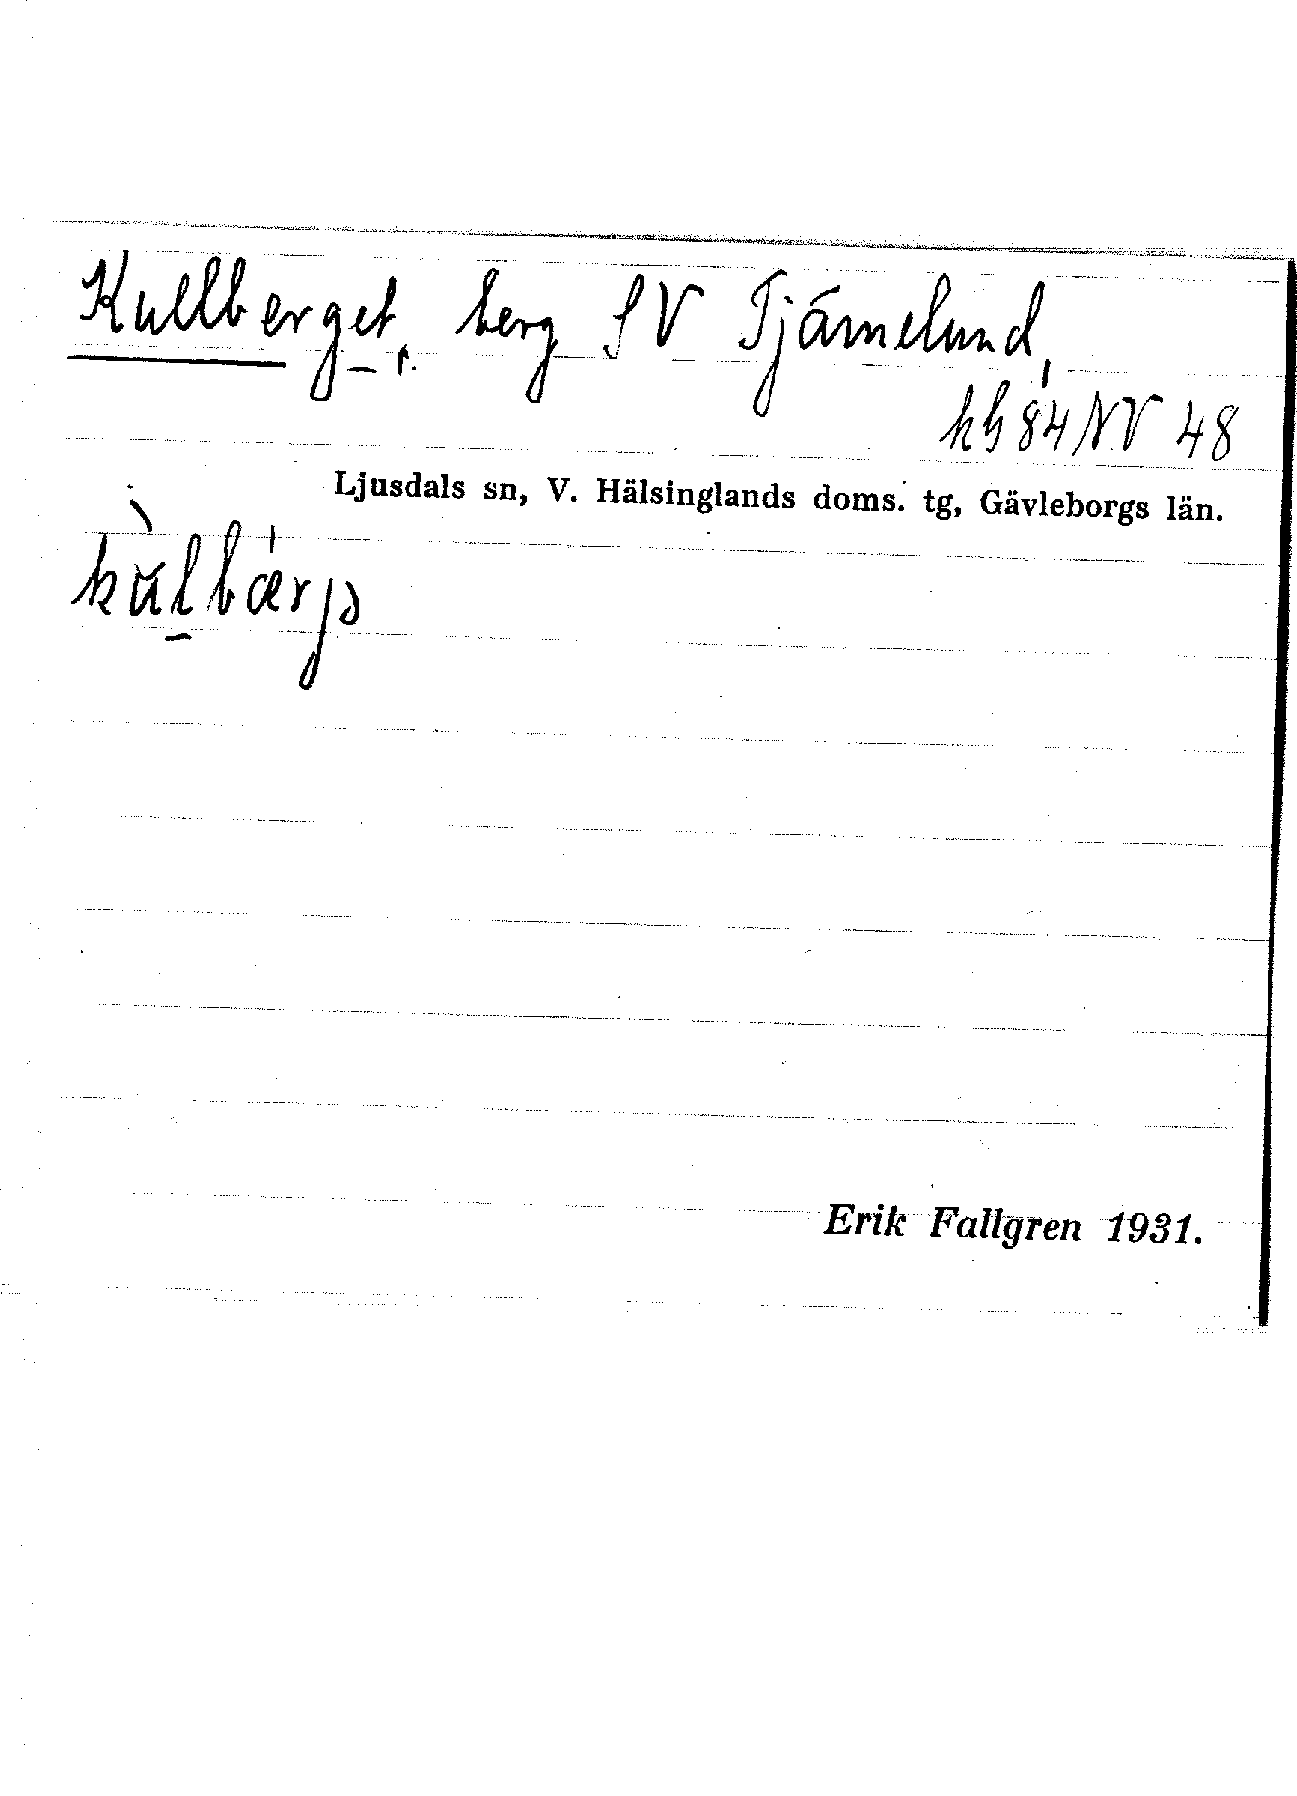 Kullberget, berg SV Tjärnelund,
kb 84 NV 48
Ljusdals sn, V. Hälsinglands doms. tg, Gävleborgs län.
kùlbærjə
Erik Fallgren 1931.